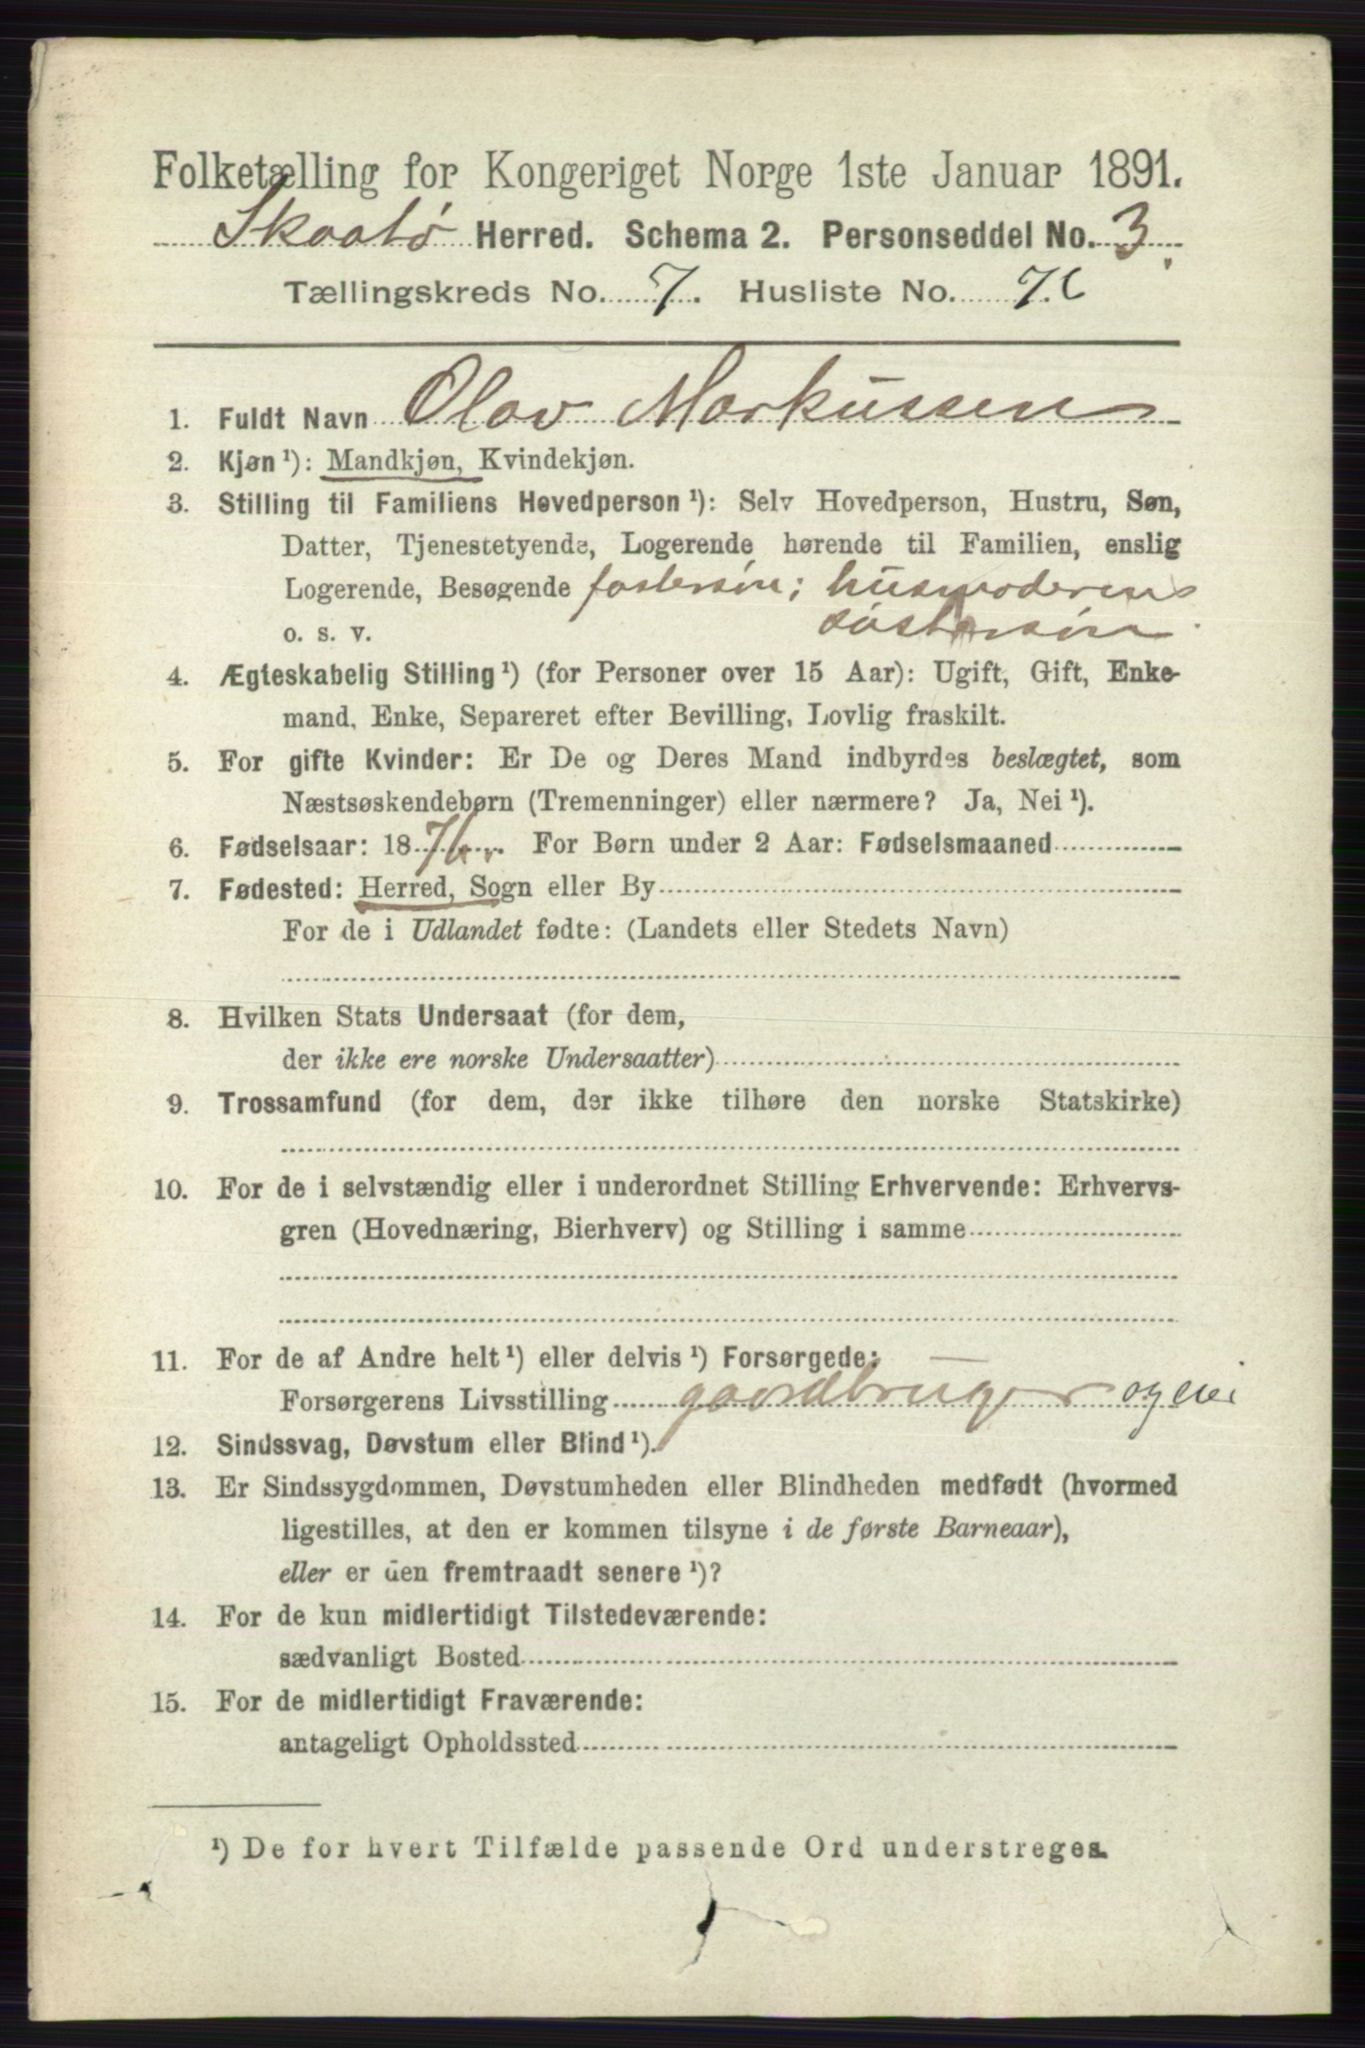 Folketælling for Kongeriget Norge 1ste Januar 1891.
Skaatø Herred. Schema 2. Personseddel No. 3.
Tællingskreds No. 7. Husliste No.
1. Fuldt Navn Olav Markussen
2. Kjøn ¹): Mandkjøn, Kvindekjøn.
3. Stilling til Familiens Hovedperson ¹): Selv Hovedperson, Hustru, Søn,
Datter, Tjenestetyende, Logerende hørende til Familien, enslig
Logerende, Besøgende fostersön; husmoderens
o. s. v. söstersön
4. Ægteskabelig Stilling ¹) (for Personer over 15 Aar): Ugift, Gift, Enke-
mand, Enke, Separeret efter Bevilling, Lovlig fraskilt.
5. For gifte Kvinder: Er De og Deres Mand indbyrdes beslægtet, som
Næstsøskendebørn (Tremenninger) eller nærmere? Ja, Nei ¹).
6. Fødselsaar: 1876. For Børn under 2 Aar: Fødselsmaaned
7. Fødested: Herred, Sogn eller By
For de i Udlandet fødte: (Landets eller Stedets Navn)
8. Hvilken Stats Undersaat (for dem,
der ikke ere norske Undersaatter)
9. Trossamfund (for dem, der ikke tilhøre den norske Statskirke)
10. For de i selvstændig eller i underordnet Stilling Erhvervende: Erhvervs-
gren (Hovednæring, Bierhverv) og Stilling i samme
11. For de af Andre helt ¹) eller delvis ¹) Forsørgede:
Forsørgerens Livsstilling gaardbruger og eier
12. Sindssvag, Døvstum eller Blind ¹).
13. Er Sindssygdommen, Døvstumheden eller Blindheden medfødt (hvormed
ligestilles, at den er kommen tilsyne i de første Barneaar),
eller er den fremtraadt senere ¹)?
14. For de kun midlertidigt Tilstedeværende:
sædvanligt Bosted
15. For de midlertidigt Fraværende:
antageligt Opholdssted
¹) De for hvert Tilfælde passende Ord understreges.